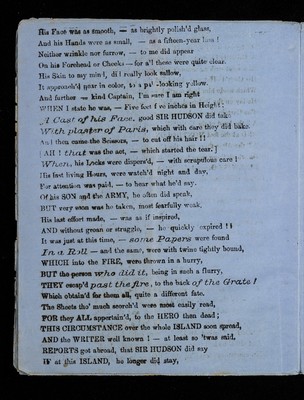 His Face was as smooth, — as brightly polish'd glass,
And his Hands were as small, — as a fifteen-year lass !
Neither wrinkle nor furrow, — to me did appear
On his Forehead or Cheeks—for all those were quite clear.
His Skin to my mind, did really look sallow,
It approach'd near in color, to a pale-looking yellow.
And further — kind Captain, I'm sure I am right
WHEN I state he was, — Five feet five inches in Height:
A Cast of his Face, good SIR HUDSON did take
With plaster of Paris, which with care they did bake
And then came the Scissors, — to cut off his hair !!
[AH ! that was the act, — which started the tear.]
When, his Locks were dispers'd, — with scrupulous care !
His last living Hours, were watch'd night and day,
For attention was paid, — to hear what he'd say.
Of his SON and the ARMY, he often did speak,
BUT very soon was he taken, most fearfully weak.
His last effort made, — was as if inspired,
AND without groan or struggle, — he quickly expired !!
It was just at this time, — some Papers were found
In a Roll — and the same, were with twine tightly bound,
WHICH into the FIRE, were thrown in a hurry,
BUT the person who did it, being in such a flurry,
THEY escap'd past the fire, to the back of the Grate !
Which obtain'd for them all, quite a different fate.
The Sheets tho' much scorch'd were most easily read,
FOR they ALL appertain'd, to the HERO then dead;
THIS CIRCUMSTANCE over the whole ISLAND soon spread,
AND the WRITER well known ! — at least so 'twas said.
REPORTS got abroad, that SIR HUDSON did say
IF at this ISLAND, he longer did stay,